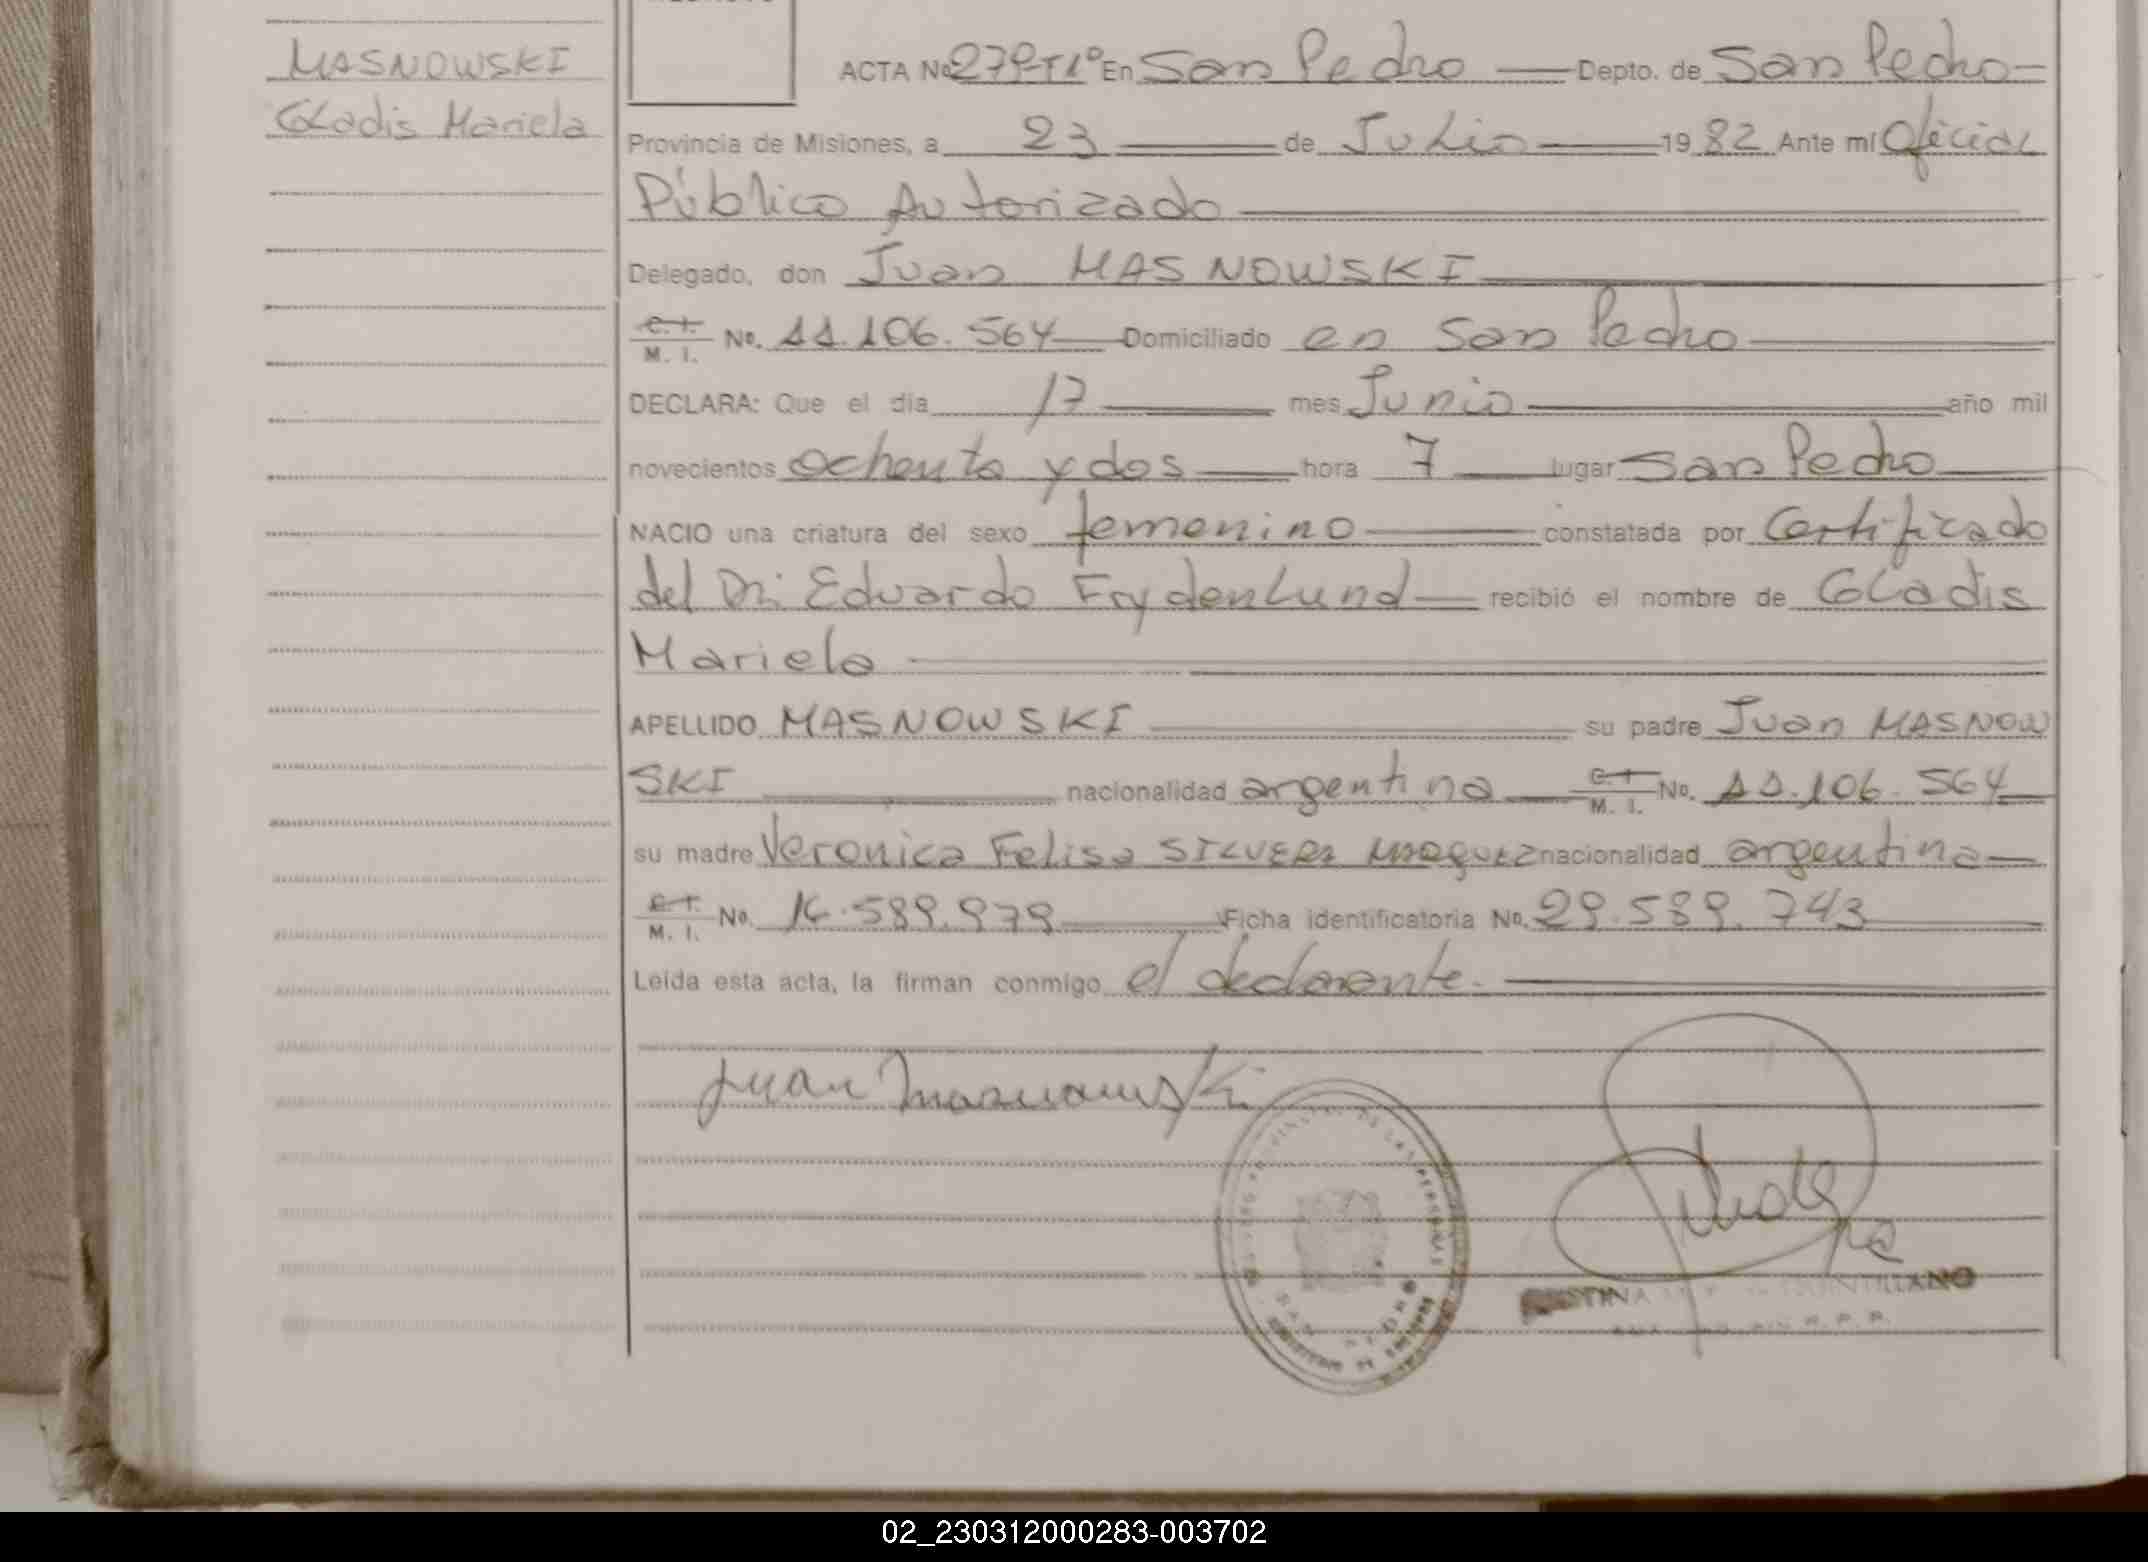 MASNOWSKI
Gladis Mariela
ACTA No 279-T1º En San Pedro Depto. de San Pedro
Provincia de Misiones, a 23 de Julio 1982 Ante mí Oficial
Público Autorizado
Delegado, don Juan MASNOWSKI
C. I. M. I. No. 11.106.564 Domiciliado en San Pedro
DECLARA: Que el día 17 mes Junio año mil
novecientos ochenta y dos hora 7 lugar San Pedro
NACIO una criatura del sexo femenino constatada por Certificado
del Dr. Eduardo Frydenlund recibió el nombre de Gladis
Mariela
APELLIDO MASNOWSKI su padre Juan MASNOW
SKI nacionalidad argentina C. I. M. I. No. 11.106.564
su madre Veronica Felisa nacionalidad argentina
C. I. M. I. No. 16.589.979 Ficha identificatoria No. 29.589.743
Leída esta acta, la firman conmigo el declarante.
Juan Masnowski
02_230312000283-003702